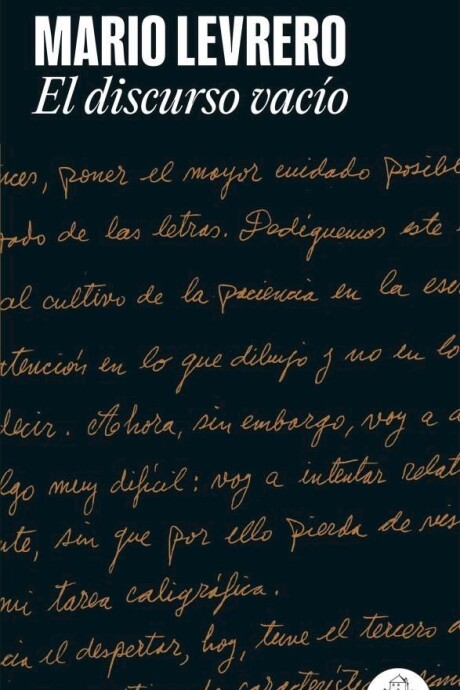 MARIO LEVRERO
El discurso vacío
nces, poner el mayor cuidado posible
zado de las letras. Dediquemos este
al cultivo de la paciencia en la esc
atención en lo que dibujo y no en lo
decir. Ahora, sin embargo, voy a
lgo muy difícil: voy a intentar relat
nte, sin que por ello pierda de vis
mi tarea caligráfica.
cia el despertar, hoy, tuve el tercero